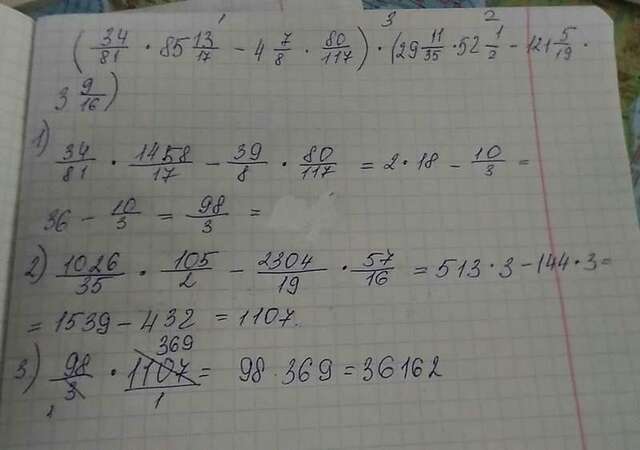 1 3 2
(34/81 · 85 13/17 - 4 7/8 · 80/117) · (29 11/35 · 52 1/2 - 121 5/19 ·
3 9/16)
1) 34/81 · 1458/17 - 39/8 · 80/117 = 2 · 18 - 10/3 =
36 - 10/3 = 98/3 =
2) 1026/35 · 105/2 - 2304/19 · 57/16 = 513 · 3 - 144 · 3 =
= 1539 - 432 = 1107.
369
3) 98/3 · 1107/1 = 98 · 369 = 36162
1